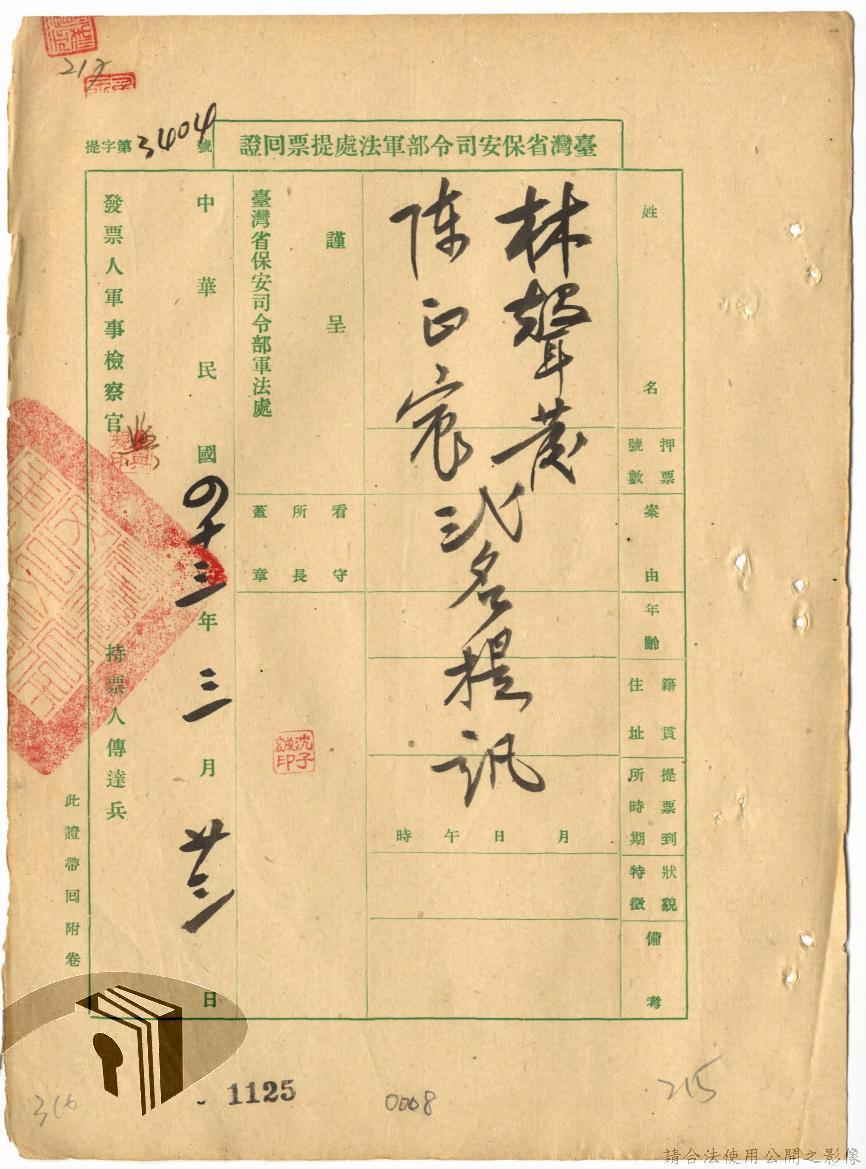 臺灣省保安司令部軍法處提票回證
提字第3404號
姓名
押票號數
案由
年齡
籍貫住址
提票到所時期
狀貌特徵
備考
林聲
陳正宸
弍名提訊
月日午時
謹呈
臺灣省保安司令部軍法處
看守所長蓋章
沈子誠印
中華民國四十三年三月廿三日
發票人軍事檢察官
持票人傳達兵
此證帶回附卷
217
316
1125
0008
215
請合法使用公開之影像